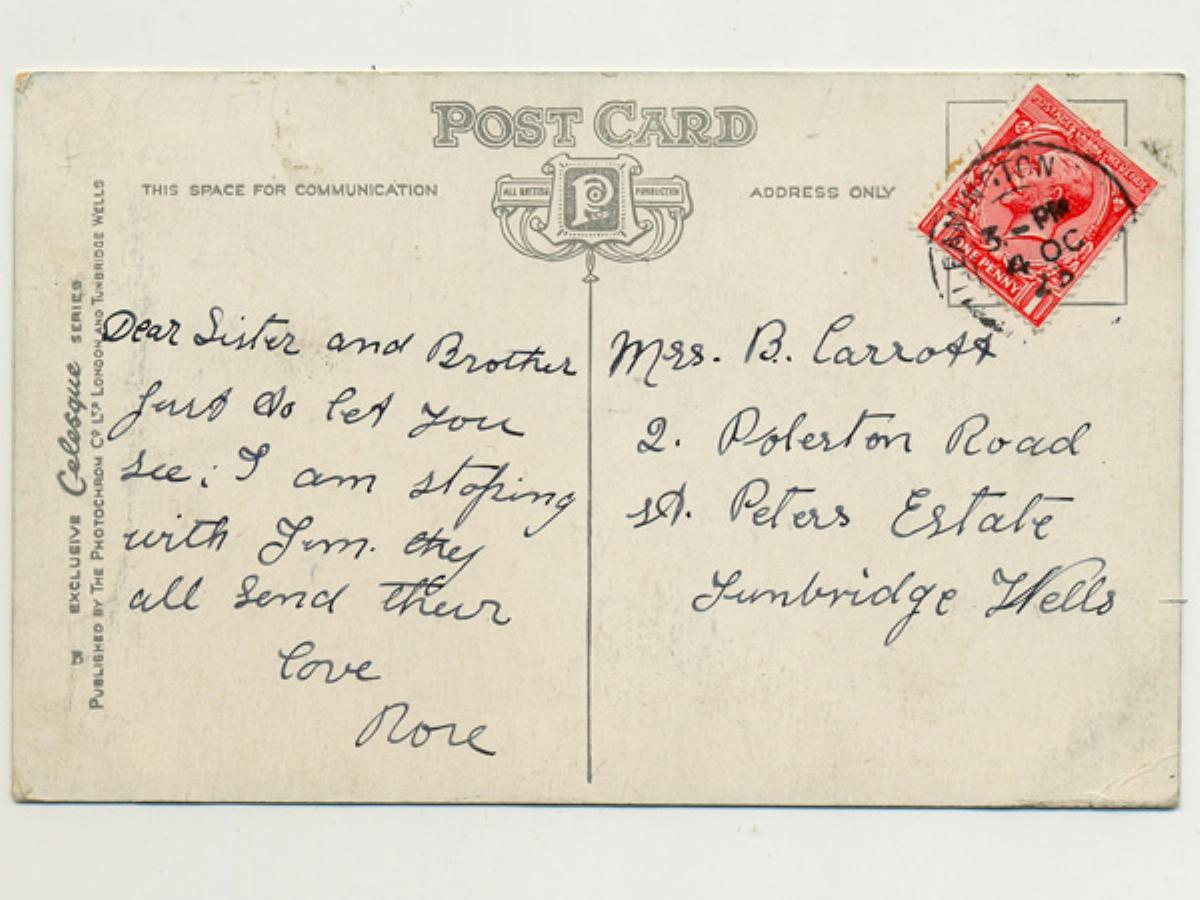 POST CARD
THIS SPACE FOR COMMUNICATION
ALL BRITISH
P
PRODUCTION
ADDRESS ONLY
EXCLUSIVE Celesque SERIES
PUBLISHED BY THE PHOTOCHROM CO LTD LONDON AND TUNBRIDGE WELLS
Dear Sister and Brother
just to let you
see. I am stoping
with Jim. they
all send their
love
Rose
POSTAGE
ONE PENNY
3 - PM
4 OC
23
Mrs. B. Carrott
2. Poleston Road
st. Peters Estate
Tunbridge Wells